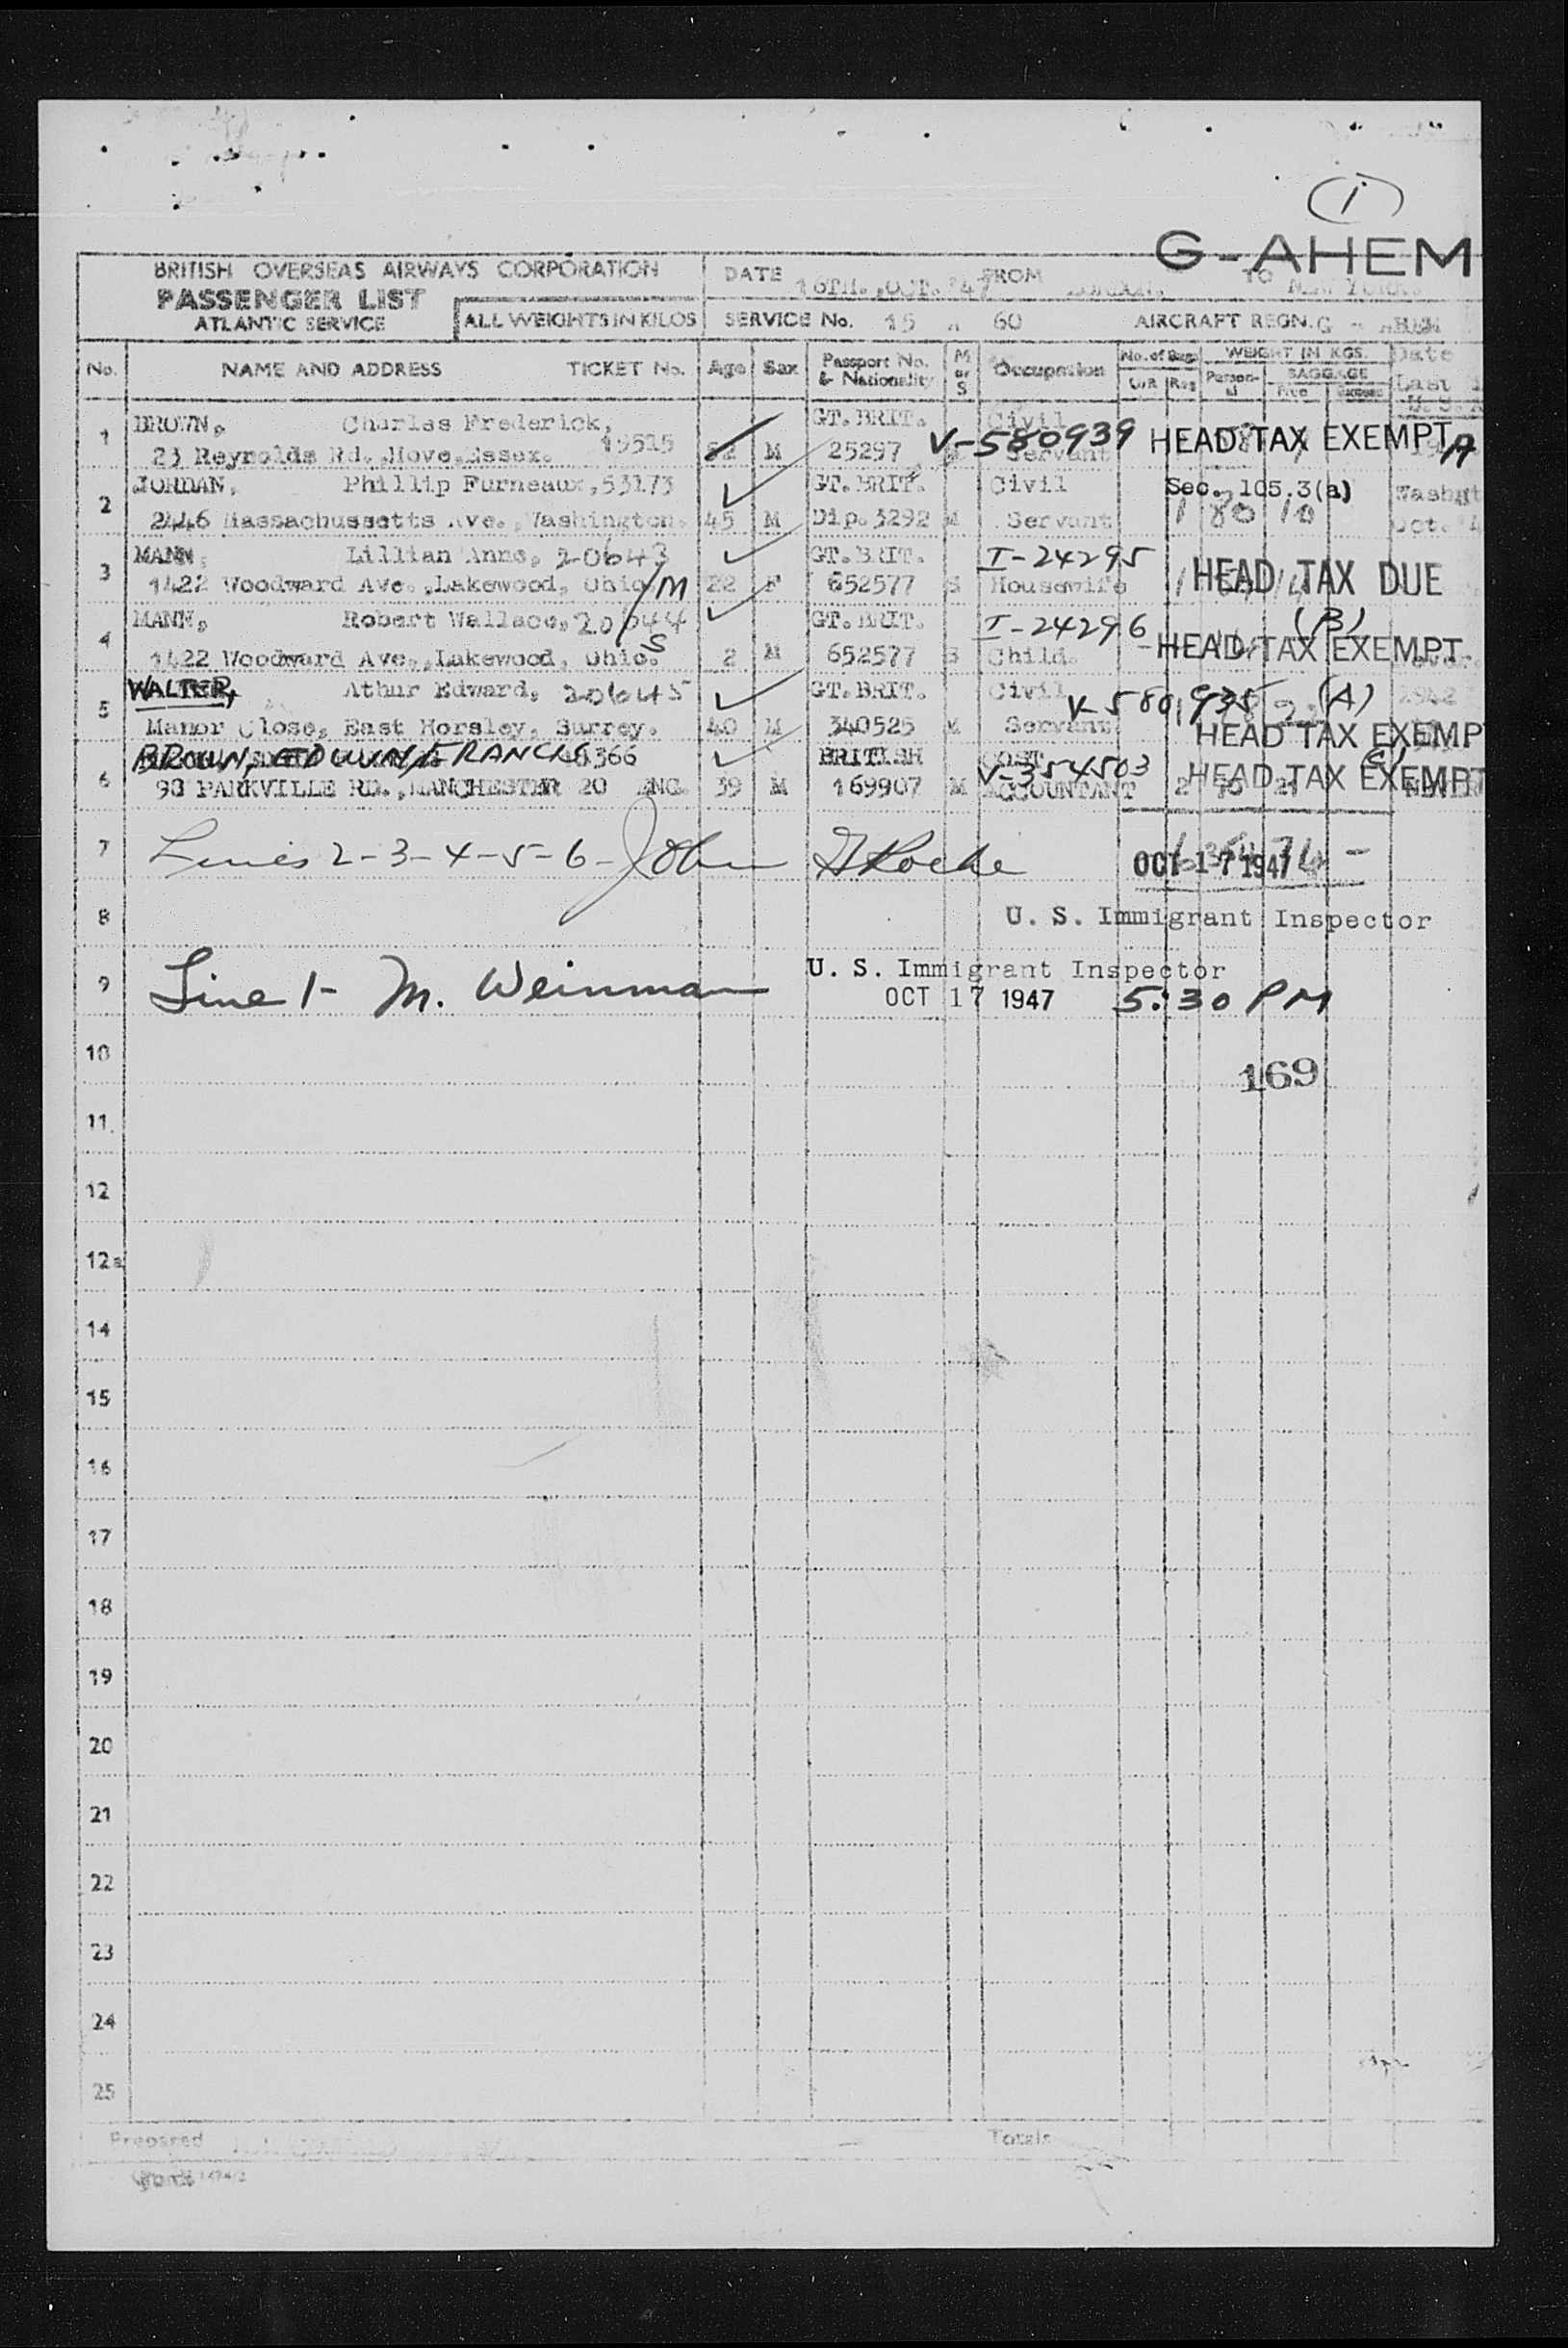 1
G-AHEM
BRITISH OVERSEAS AIRWAYS CORPORATION
PASSENGER LIST
ATLANTIC SERVICE
ALL WEIGHTS IN KILOS
DATE 16TH.,OCT.'47 FROM LONDON. TO NEW YORK.
SERVICE No. 15 A 60 AIRCRAFT REGN. G - AHEM
No. NAME AND ADDRESS TICKET No. Age Sex Passport No. & Nationality M or S Occupation No. of Bags WEIGHT IN KGS. Date
BAGGAGE Last
1 BROWN, Charles Frederick, GT.BRIT. Civil
23 Reynolds Rd.,Hove,Essex. 19515 M 25297 V-580939 Servant HEAD TAX EXEMPT A
2 JORDAN, Phillip Furneaux,53173 GT.BRIT. Civil Sec. 105.3(a) Washgt
2446 Massachussetts Ave.,Washington. 45 M Dip.3292 M Servant 1 80 10 Oct.
3 MANN, Lillian Anne, 20643 GT.BRIT. I-24295
1422 Woodward Ave.,Lakewood, Ohio. M 22 F 652577 S Housewife 1 HEAD TAX DUE
4 MANN, Robert Wallace, 20644 GT.BRIT. I-24296 (B)
1422 Woodward Ave.,Lakewood, Ohio. S 2 M 652577 S Child. HEAD TAX EXEMPT
5 WALTER, Athur Edward, 20645 GT.BRIT. Civil V-580,935 (A) 1942
Manor Close, East Horsley, Surrey. 40 M 340525 M Servant HEAD TAX EXEMP
6 BROWN, EDWIN FRANCIS 366 BRITISH COST V-354503
93 PARKVILLE RD.,MANCHESTER 20 ENG. 39 M 169907 M ACCOUNTANT 2 HEAD TAX EXEMPT
7 Lines 2-3-4-5-6- John G Roche OCT 17 1947
8 U. S. Immigrant Inspector
U. S. Immigrant Inspector
9 Line 1- M. Weinman OCT 17 1947 5:30 PM
10 169
11
12
12a
14
15
16
17
18
19
20
21
22
23
24
25
Prepared Totals